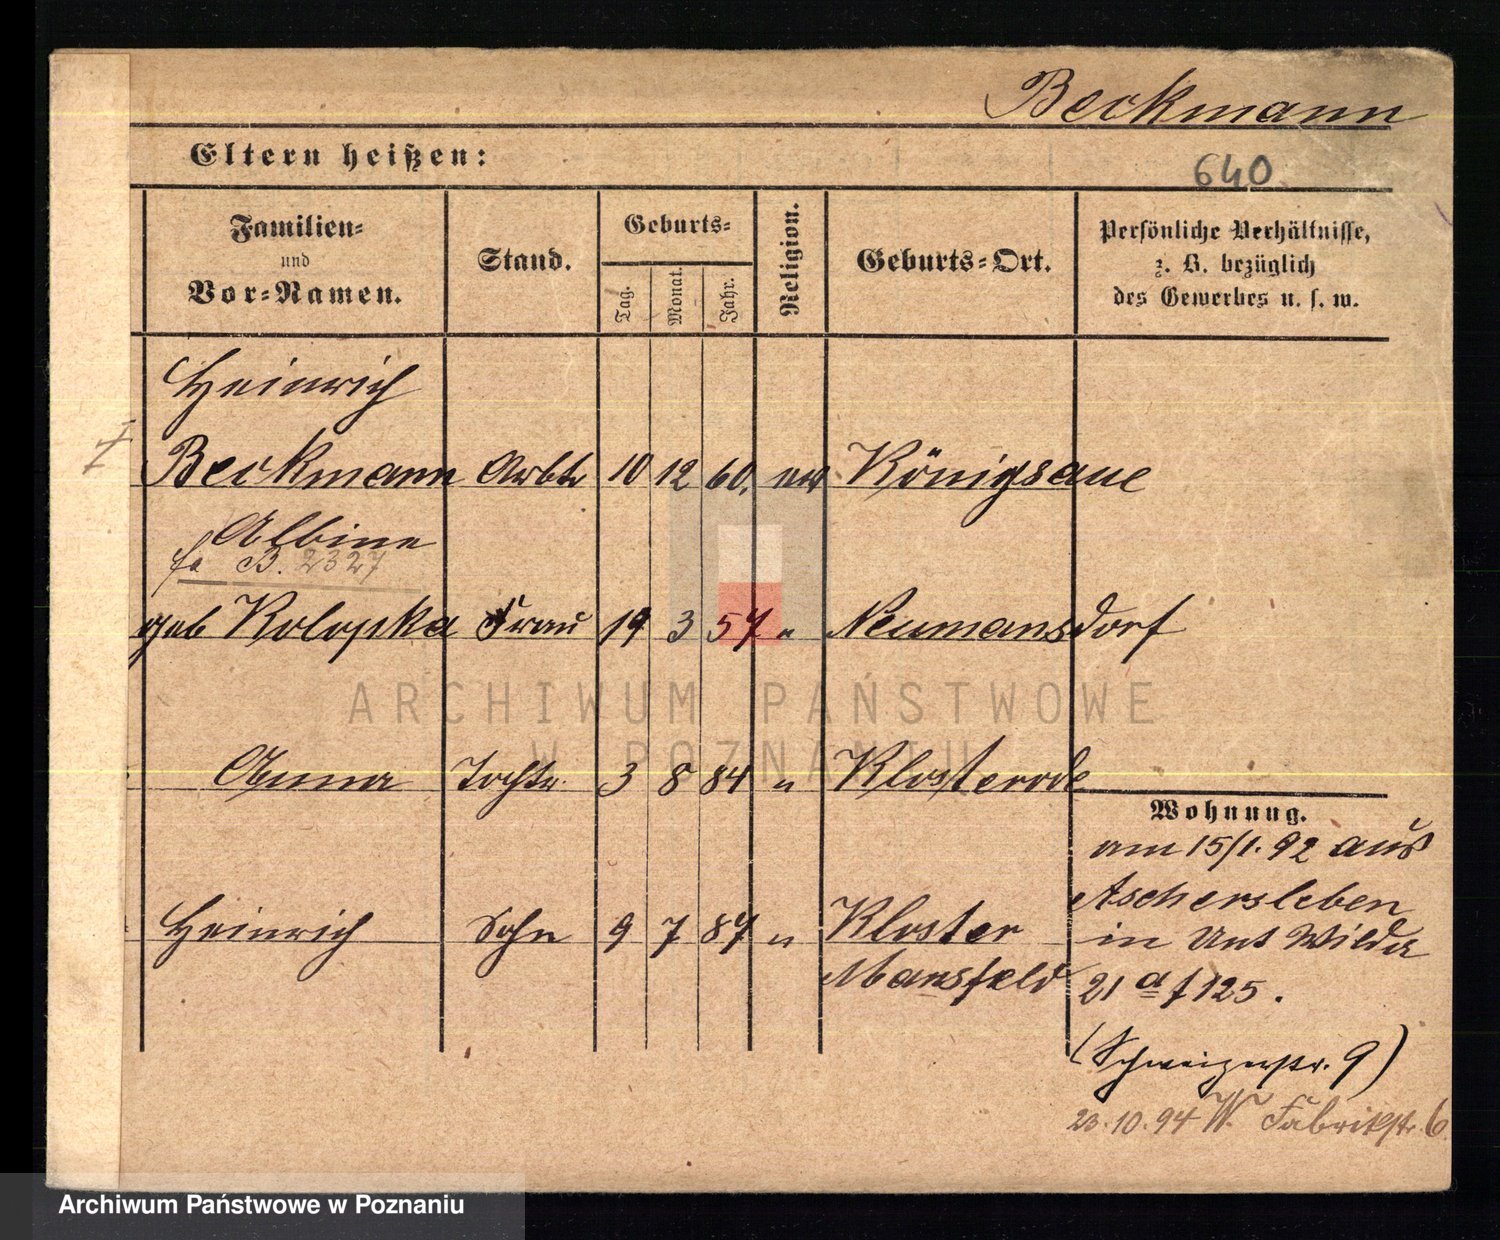 Beckmann
Eltern heißen:
640
Familien-
und
Vor-Namen.
Stand.
Geburts-
Tag.
Monat.
Jahr.
Religion.
Geburts-Ort.
Persönliche Verhältnisse,
z. B. bezüglich
des Gewerbes u. s. w.
Heinrich
Beckmann Arbtr 10 12 60. ev Königsaue
Albine
B. 2327
geb Kolopka Frau 19 3 57 " Neumansdorf
ARCHIWUM PAŃSTWOWE
W POZNANIU
Anna Tochtr. 3 8 84 " Klosterode
Wohnung.
am 15/1. 92 aus
Aschersleben
Heinrich Sohn 9 7 87 " Kloster
Mansfeld
in Unt Wilda
21 a f 125.
(Schweizerstr. 9)
23.10.94 W. Fabrikstr. 6
Archiwum Państwowe w Poznaniu